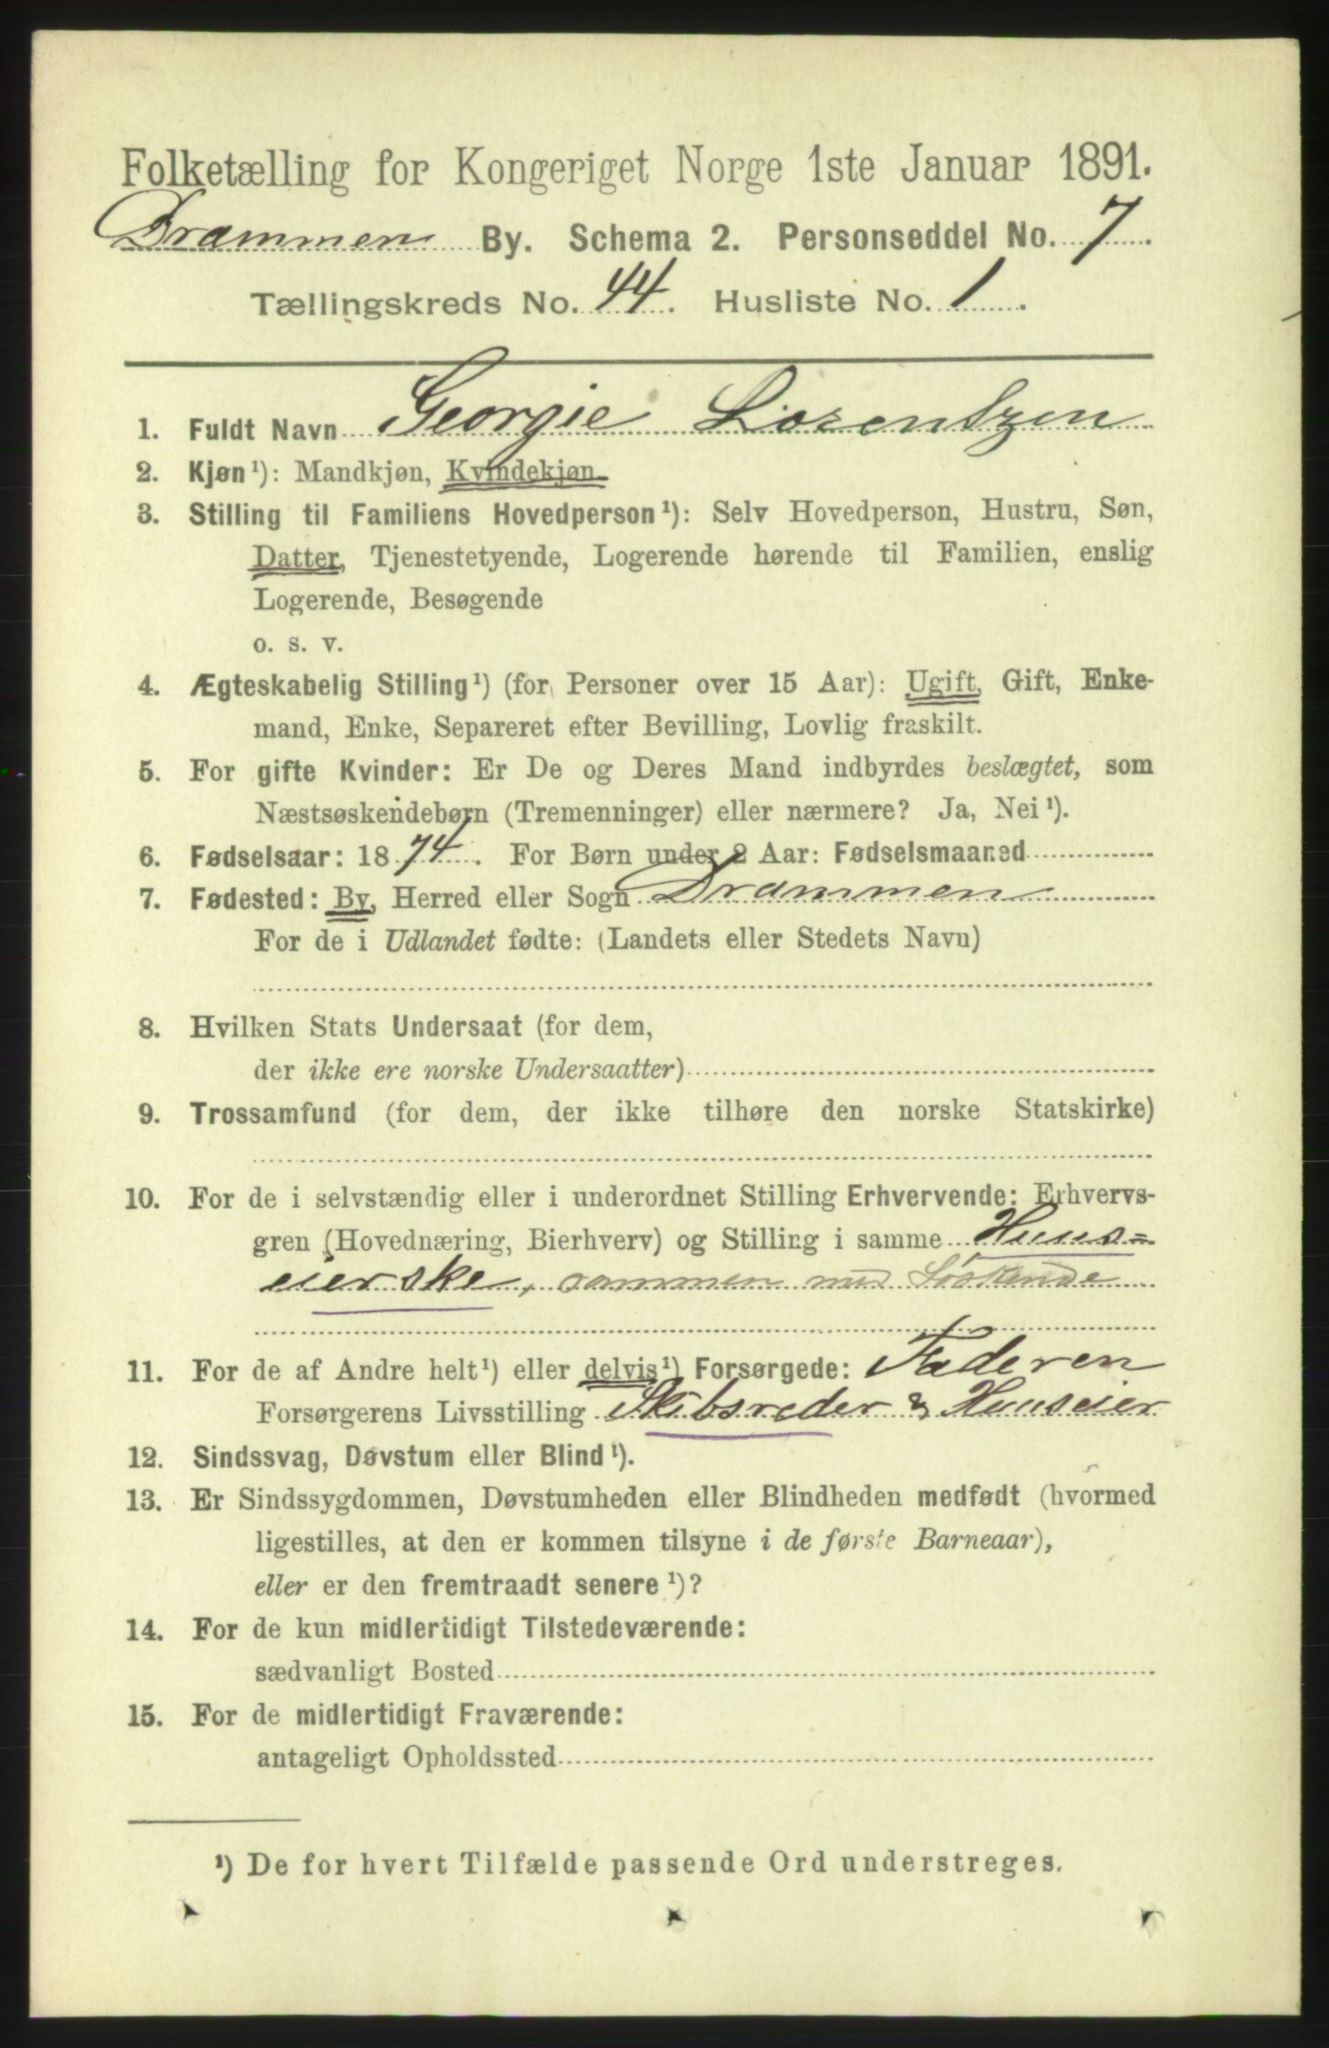 Folketælling for Kongeriget Norge 1ste Januar 1891.
Drammen By. Schema 2. Personseddel No. 7.
Tællingskreds No. 44. Husliste No. 1.
1. Fuldt Navn Georgie Lorentzen
2. Kjøn¹): Mandkjøn, Kvindekjøn.
3. Stilling til Familiens Hovedperson¹): Selv Hovedperson, Hustru, Søn,
Datter, Tjenestetyende, Logerende hørende til Familien, enslig
Logerende, Besøgende
o. s. v.
4. Ægteskabelig Stilling¹) (for Personer over 15 Aar): Ugift, Gift, Enke-
mand, Enke, Separeret efter Bevilling, Lovlig fraskilt.
5. For gifte Kvinder: Er De og Deres Mand indbyrdes beslægtet, som
Næstsøskendebørn (Tremenninger) eller nærmere? Ja, Nei¹).
6. Fødselsaar: 1874. For Børn under 2 Aar: Fødselsmaaned
7. Fødested: By, Herred eller Sogn Drammen
For de i Udlandet fødte: (Landets eller Stedets Navn)
8. Hvilken Stats Undersaat (for dem,
der ikke ere norske Undersaatter)
9. Trossamfund (for dem, der ikke tilhøre den norske Statskirke)
10. For de i selvstændig eller i underordnet Stilling Erhvervende: Erhvervs-
gren (Hovednæring, Bierhverv) og Stilling i samme Huus=
eierske, sammen med Söskende
11. For de af Andre helt¹) eller delvis¹) Forsørgede: Faderen
Forsørgerens Livsstilling Skibsreder & Huuseier
12. Sindssvag, Døvstum eller Blind¹).
13. Er Sindssygdommen, Døvstumheden eller Blindheden medfødt (hvormed
ligestilles, at den er kommen tilsyne i de første Barneaar),
eller er den fremtraadt senere¹)?
14. For de kun midlertidigt Tilstedeværende:
sædvanligt Bosted
15. For de midlertidigt Fraværende:
antageligt Opholdssted
¹) De for hvert Tilfælde passende Ord understreges.